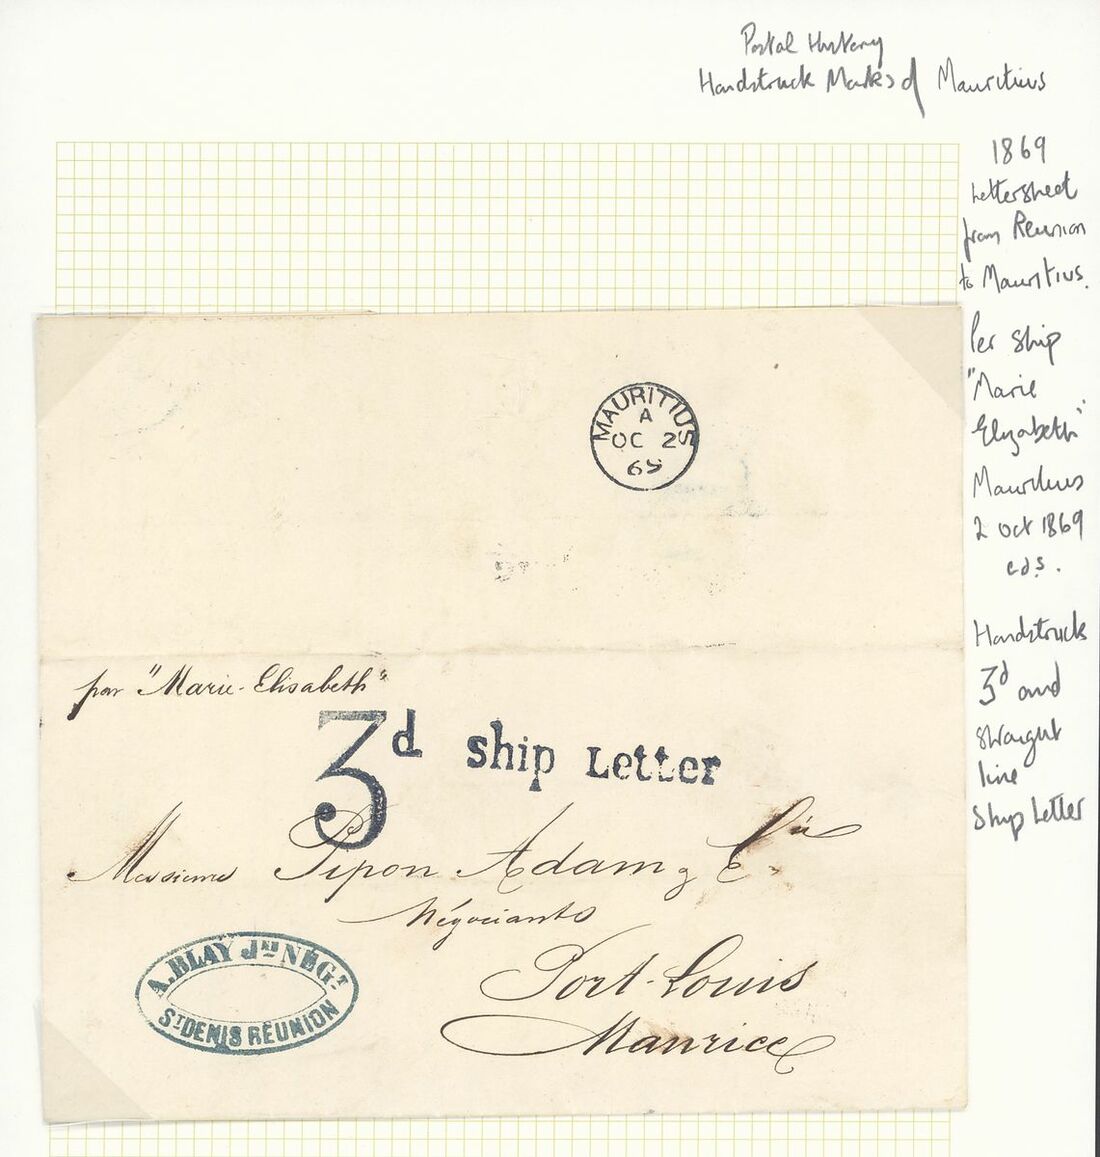 Postal History
Handstruck Marks of Mauritius
1869
Lettersheet
from Reunion
to Mauritius.
Per ship
"Marie
Elizabeth"
Mauritius
2 oct 1869
cds.
Handstruck
3d and
straight
line
Ship Letter
MAURITIUS
A
OC 2
69
par "Marie-Elisabeth"
3d Ship Letter
Messieurs Pipon Adam & Cie
Négociants
Port-Louis
Maurice
A. BLAY JNE NÉGT
ST DENIS RÉUNION